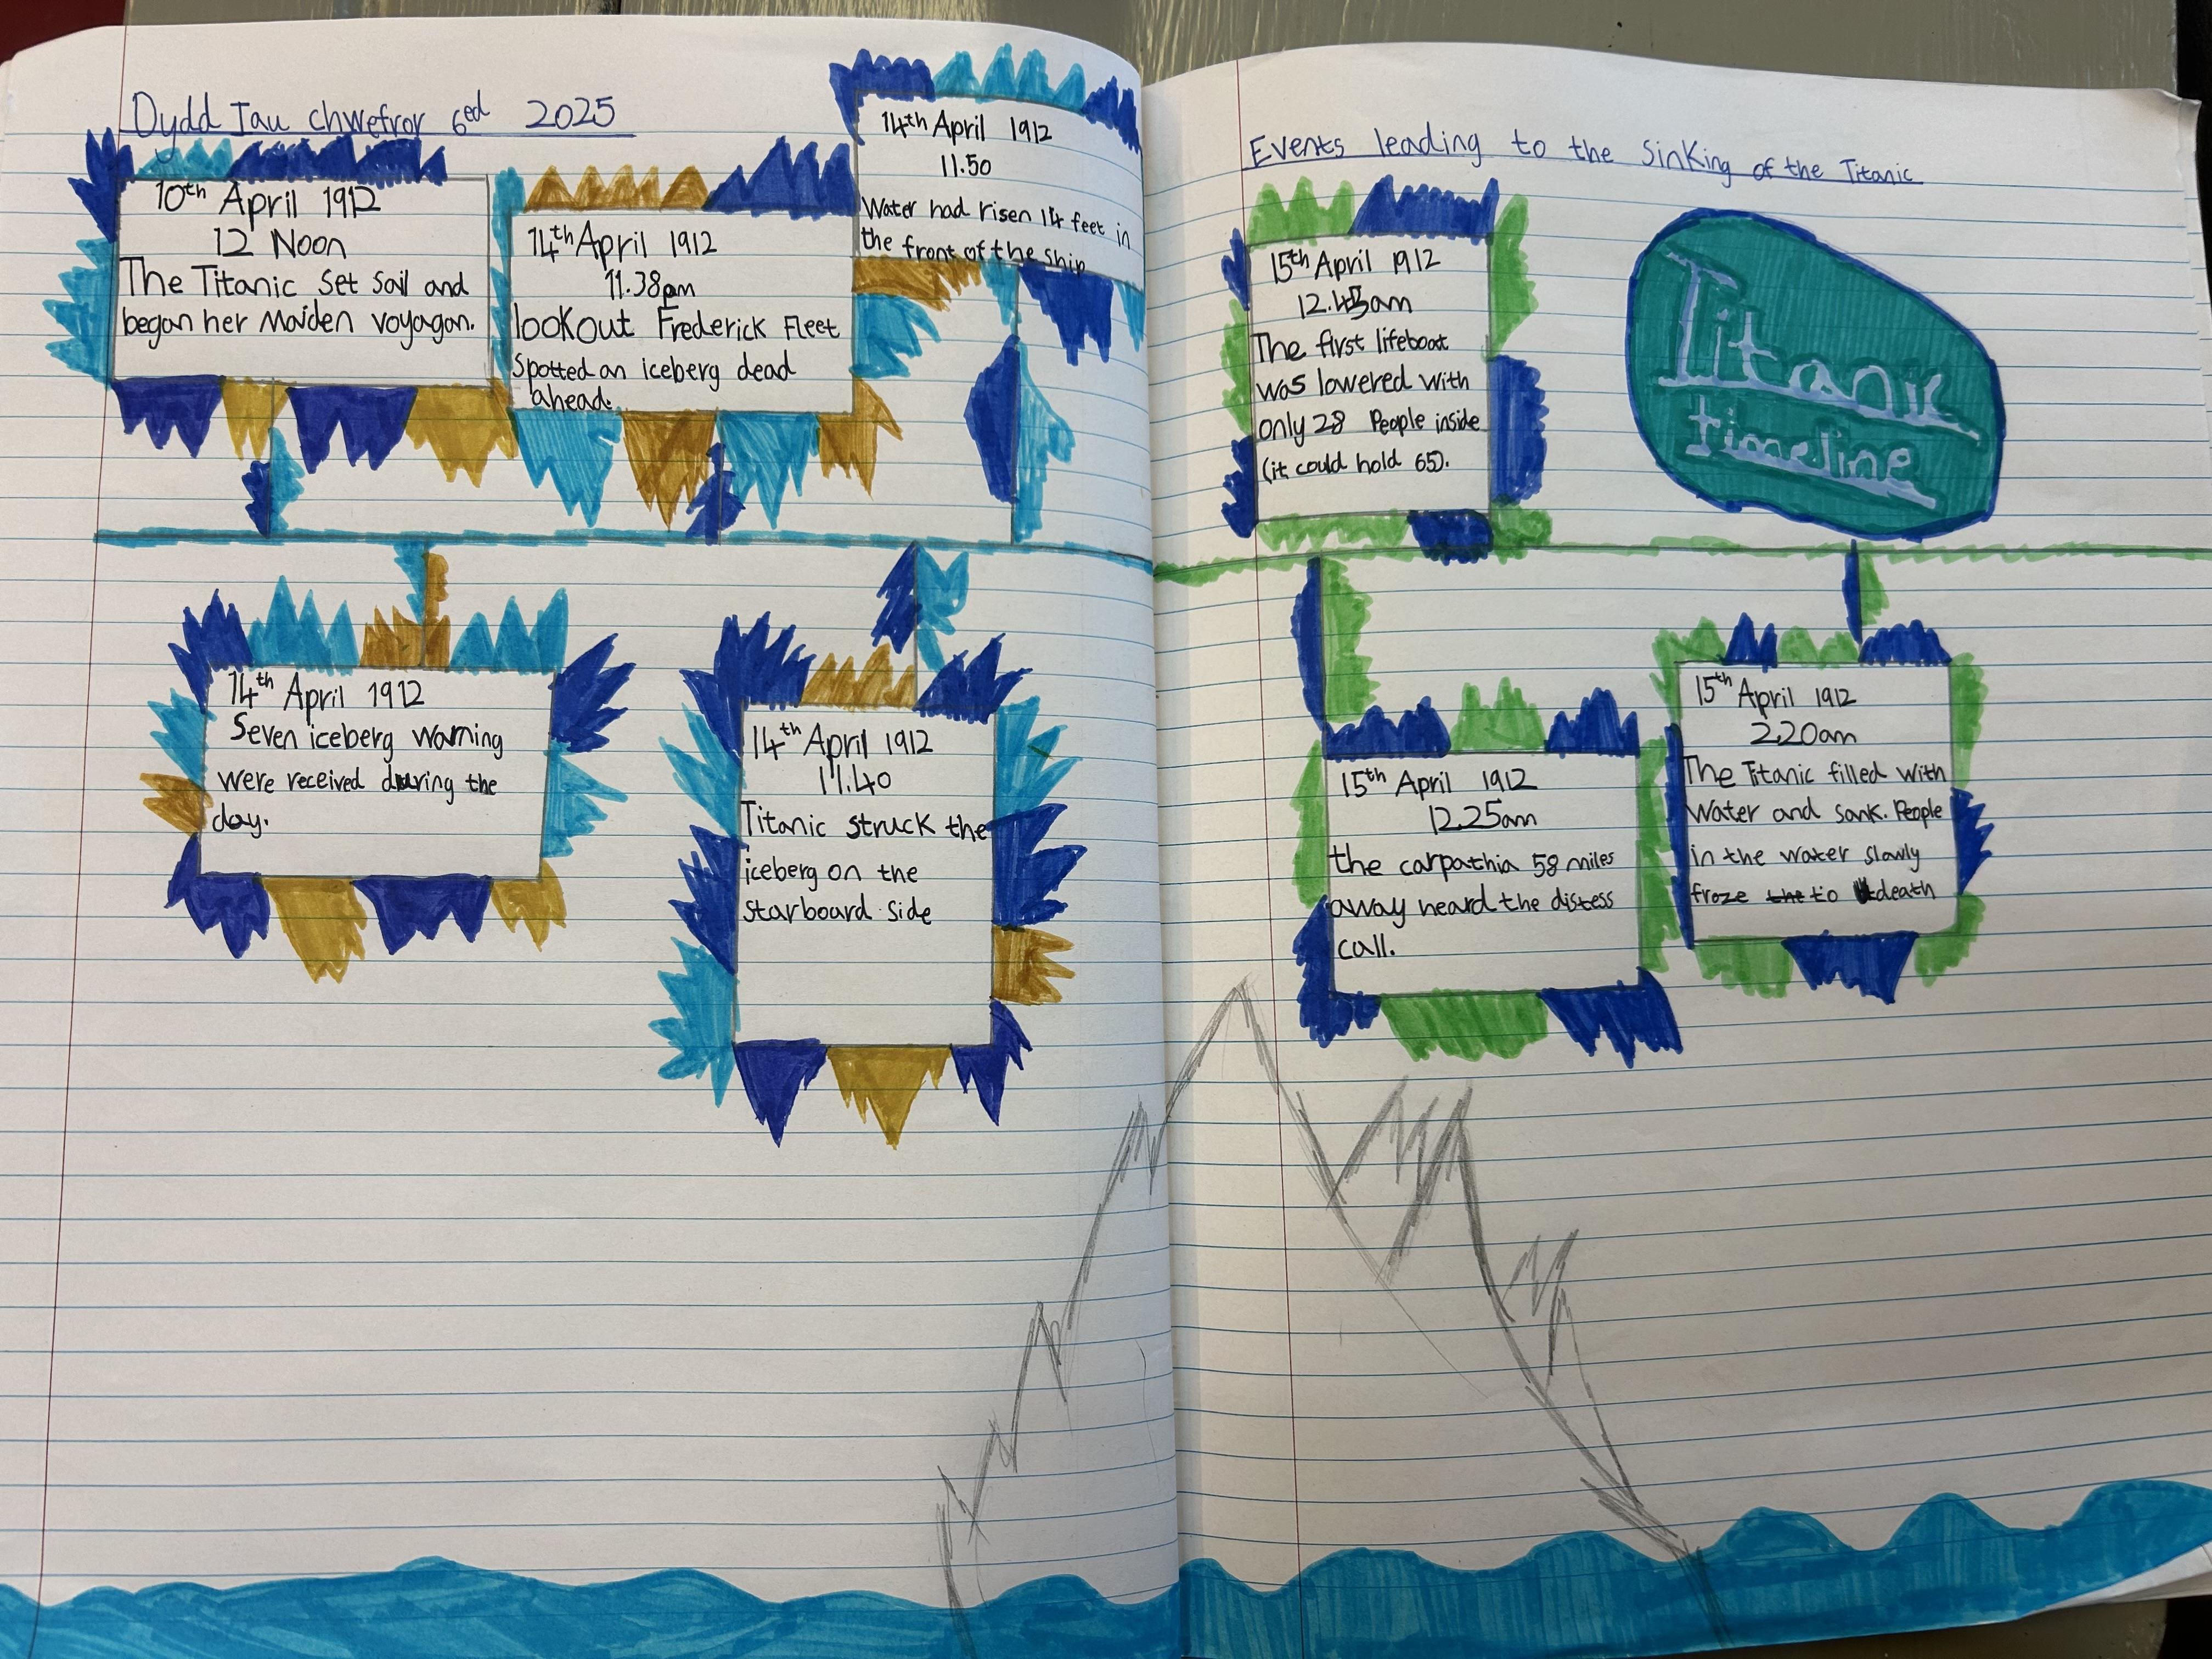 Dydd Iau chwefror 6ed 2025
10th April 1912
12 Noon
The Titanic set sail and
began her Maiden voyagan.
14th April 1912
11.38pm
lookout Frederick Fleet
spotted an iceberg dead
ahead.
14th April 1912
11.50
Water had risen 14 feet in
the front of the ship
14th April 1912
Seven iceberg warning
were received during the
day.
14th April 1912
11.40
Titanic struck the
iceberg on the
starboard side
Events leading to the sinking of the Titanic
15th April 1912
12.45am
The first lifeboat
was lowered with
only 28 People inside
(it could hold 65).
Titanic
timeline
15th April 1912
12.25am
the carpathia 58 miles
away heard the distess
call.
15th April 1912
2.20am
The Titanic filled with
Water and sank. People
in the water slowly
froze the to death